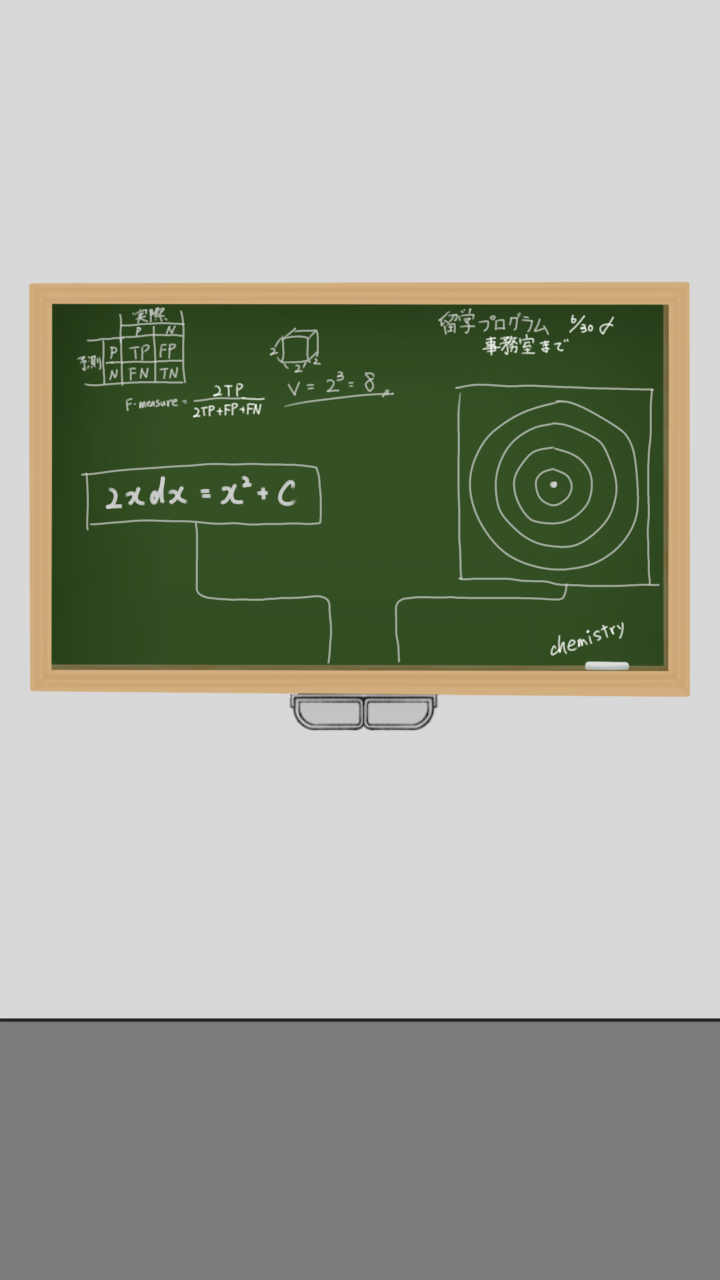 実際
P N
予測 P TP FP
N FN TN
F-measure = 2TP / 2TP+FP+FN
2
2 2
V = 2³ = 8
留学プログラム 6/30 〆
事務室まで
2xdx = x² + C
chemistry